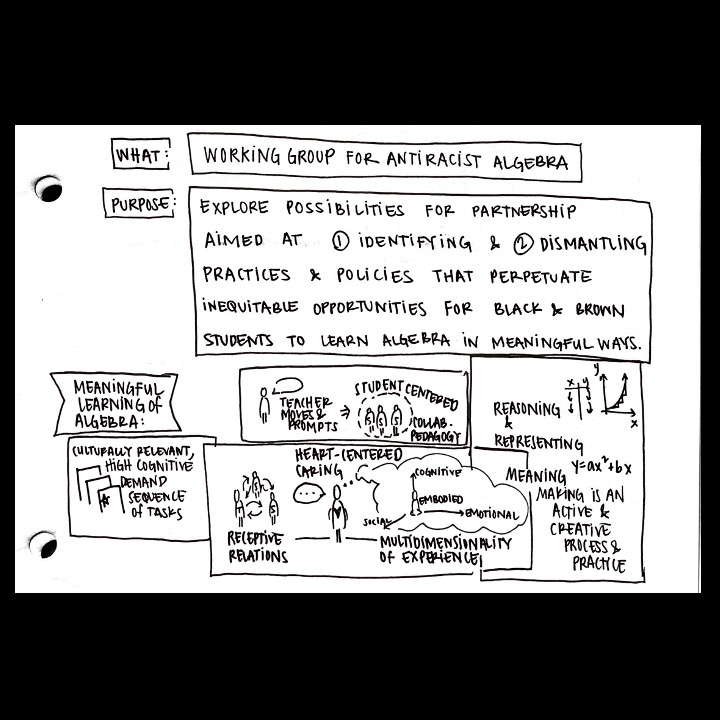 WHAT:
WORKING GROUP FOR ANTIRACIST ALGEBRA
PURPOSE:
EXPLORE POSSIBILITIES FOR PARTNERSHIP
AIMED AT ① IDENTIFYING & ② DISMANTLING
PRACTICES & POLICIES THAT PERPETUATE
INEQUITABLE OPPORTUNITIES FOR BLACK & BROWN
STUDENTS TO LEARN ALGEBRA IN MEANINGFUL WAYS.
MEANINGFUL
LEARNING OF
ALGEBRA:
CULTURALLY RELEVANT,
HIGH COGNITIVE
DEMAND
SEQUENCE
OF TASKS
TEACHER
MOVES &
PROMPTS
STUDENT CENTERED
S S S
COLLAB.
PEDAGOGY
HEART-CENTERED
CARING
RECEPTIVE
RELATIONS
T S S
COGNITIVE
EMBODIED
EMOTIONAL
SOCIAL
MULTIDIMENSIONALITY
OF EXPERIENCE
x y
y
x
REASONING
&
REPRESENTING
y=ax²+bx
MEANING
MAKING IS AN
ACTIVE &
CREATIVE
PROCESS &
PRACTICE